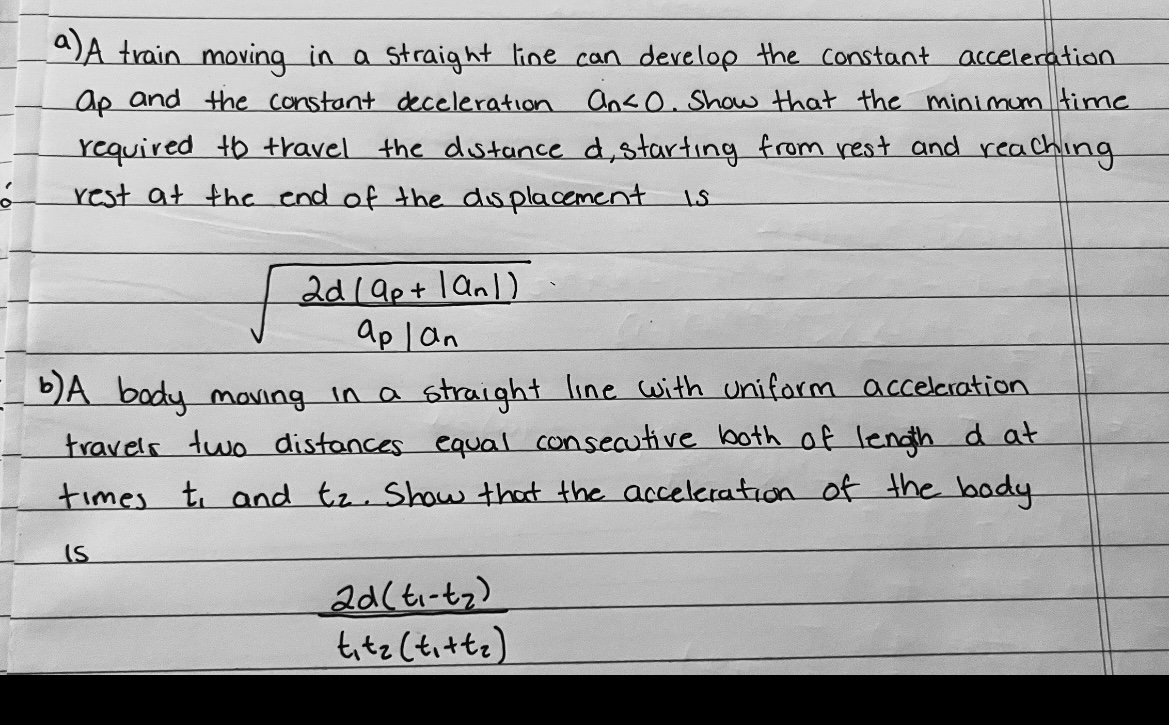 a) A train moving in a straight line can develop the constant acceleration
ap and the constant deceleration an<0. Show that the minimum time
required to travel the distance d, starting from rest and reaching
rest at the end of the displacement is
√(2d(ap+|an|)
ap|an
b) A body moving in a straight line with uniform acceleration
travels two distances equal consecutive both of length d at
times t₁ and t₂. Show that the acceleration of the body
is
2d(t₁-t₂)
t₁t₂(t₁+t₂)